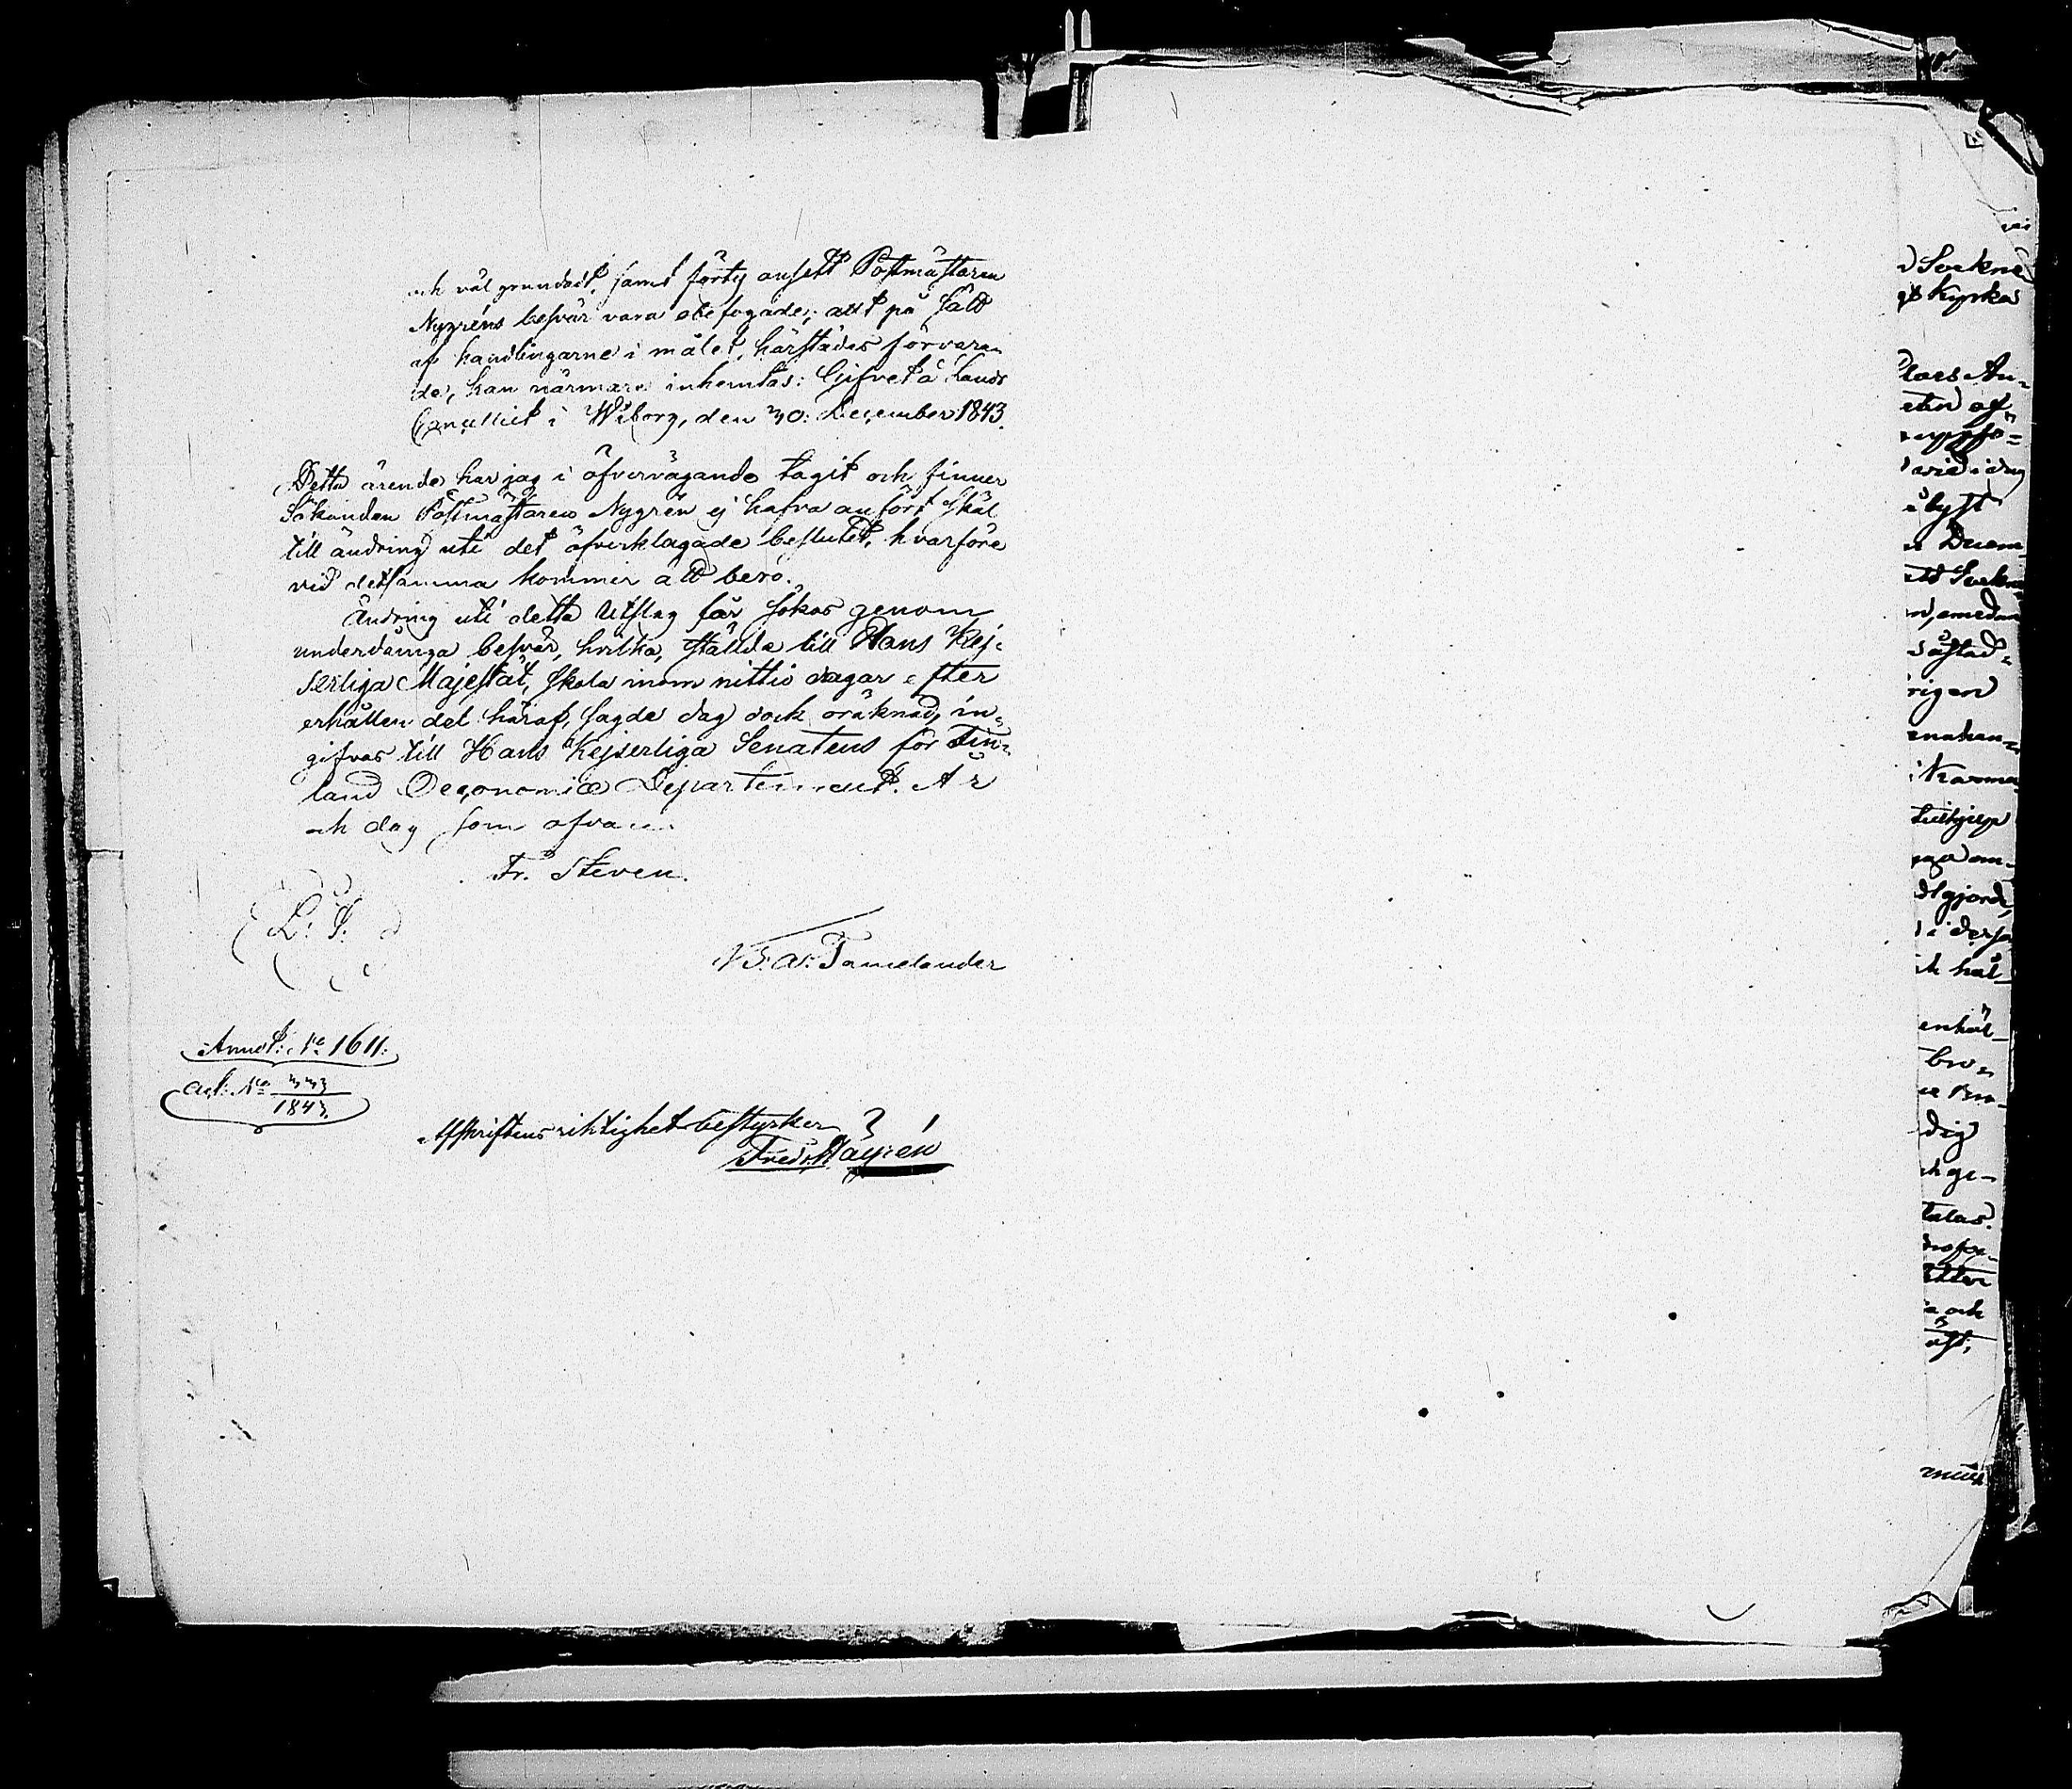 och väl grundadt, samt förty ansett Postmästaren
Nygréns besvär vara obefogade; allt på sätt
af handlingarne i målet, härstädes förvaran-
de, kan närmare inhemtas. Gifvet å Lands
Cancelliet i Wiborg, den 30: December 1843.
Detta ärende har jag i öfvervägande tagit och finner
Sökanden Postmästaren Nygrén ej hafva anfört skäl
till ändring uti det öfverklagade beslutet, hvarföre
vid detsamma kommer att bero.
Ändring uti detta Utslag får sökas genom
underdåniga besvär, hvilka, stälde till Hans Kej-
serliga Majestät, skola inom nittio dagar efter
erhållen del häraf, sagde dag dock oräknad, in-
gifvas till Hans Kejserliga Senatens för Fin-
land Oeconomiæ Departement. År
och dag som ofvan.
Fr. Steven.
L. S.
Tamelander
Annot: No 1611.
act. No 333
1843.
Afskriftens riktighet bestyrker
Fredr.
d Sockne
gs Kyrka
Clars An-
etin af
uppfö-
ilyst
Duem
rigen
Karma
gjorde,
ch häl-
enhäl-
bro-
dig
ch ge-
talas.
a och